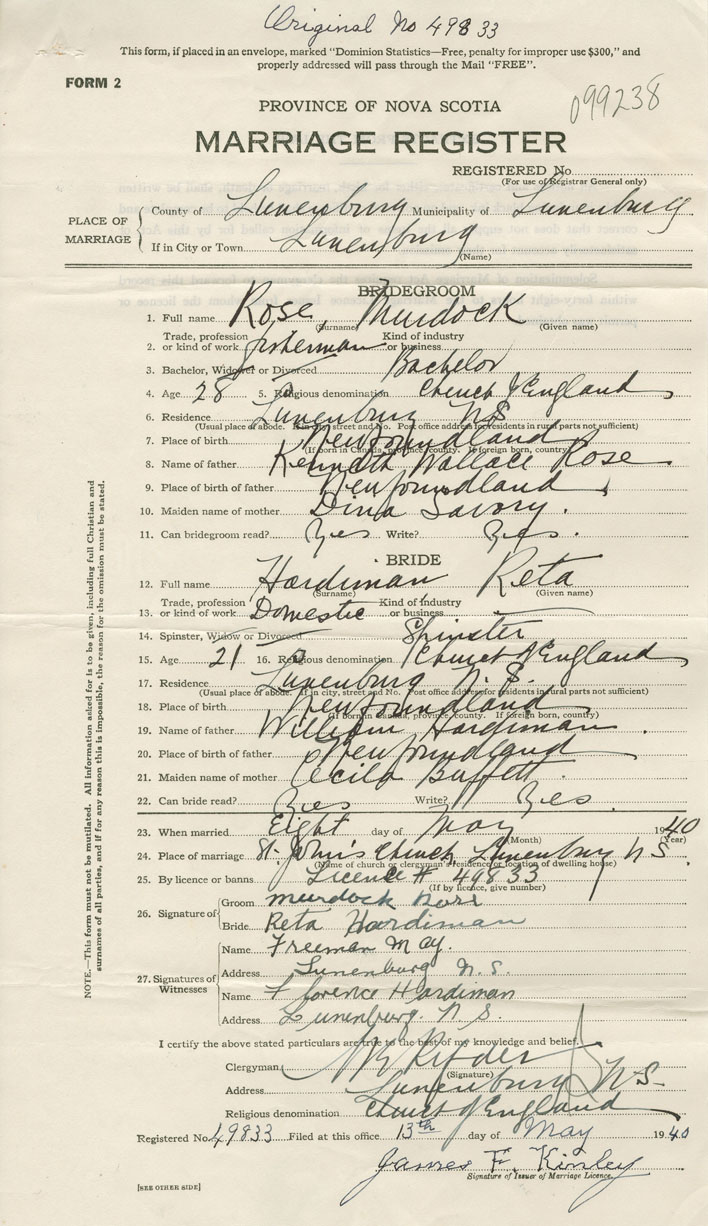 Original No 49833
This form, if placed in an envelope, marked "Dominion Statistics—Free, penalty for improper use $300," and
properly addressed will pass through the Mail "FREE".
FORM 2
099238
PROVINCE OF NOVA SCOTIA
MARRIAGE REGISTER
REGISTERED No.
(For use of Registrar General only)
PLACE OF MARRIAGE
County of Lunenburg Municipality of Lunenburg
If in City or Town Lunenburg
(Name)
BRIDEGROOM
1. Full name Rose, Murdock
(Surname) (Given name)
2. Trade, profession or kind of work fisherman Kind of industry or business
3. Bachelor, Widower or Divorced Bachelor
4. Age 28 5. Religious denomination Church of England
6. Residence Lunenburg NS
(Usual place of abode. If in city, street and No. Post office address for residents in rural parts not sufficient)
7. Place of birth Newfoundland
(If born in Canada, province, county. If foreign born, country)
8. Name of father Kenneth Wallace Rose
9. Place of birth of father Newfoundland
10. Maiden name of mother Dina Savory.
11. Can bridegroom read? Yes Write? Yes.
BRIDE
12. Full name Hardiman Reta
(Surname) (Given name)
13. Trade, profession or kind of work Domestic Kind of industry or business
14. Spinster, Widow or Divorced Spinster
15. Age 21 16. Religious denomination Church of England
17. Residence Lunenburg N.S.
(Usual place of abode. If in city, street and No. Post office address for residents in rural parts not sufficient)
18. Place of birth Newfoundland
(If born in Canada, province, county. If foreign born, country)
19. Name of father William Hardiman.
20. Place of birth of father Newfoundland
21. Maiden name of mother Cecila Buffett.
22. Can bride read? Yes Write? Yes.
23. When married Eight day of May 1940
(Month) (Year)
24. Place of marriage St. John's Church Lunenburg N S.
(Name of church or clergyman's residence or location of dwelling house)
25. By licence or banns Licence # 49833
(If by licence, give number)
26. Signature of
Groom murdock
Bride Reta Hardiman
27. Signatures of Witnesses
Name Freeman May.
Address Lunenburg N.S.
Name Florence Hardiman
Address Lunenburg. N.S.
I certify the above stated particulars are true to the best of my knowledge and belief.
Clergyman
(Signature)
Address Lunenburg N-S-
Religious denomination Church of England
Registered No. 49833 Filed at this office 13th day of May 1940
James F. Kinley
Signature of Issuer of Marriage Licence.
[SEE OTHER SIDE]
NOTE.—This form must not be mutilated. All information asked for is to be given, including full Christian and
surnames of all parties, and if for any reason this is impossible, the reason for the omission must be stated.